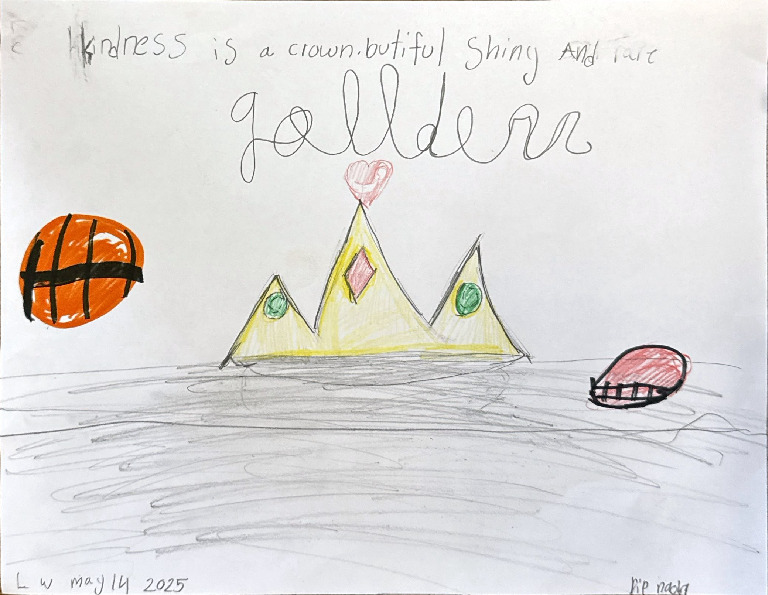 Kindness is a crown.butiful Shing And rare
L w may 14 2025